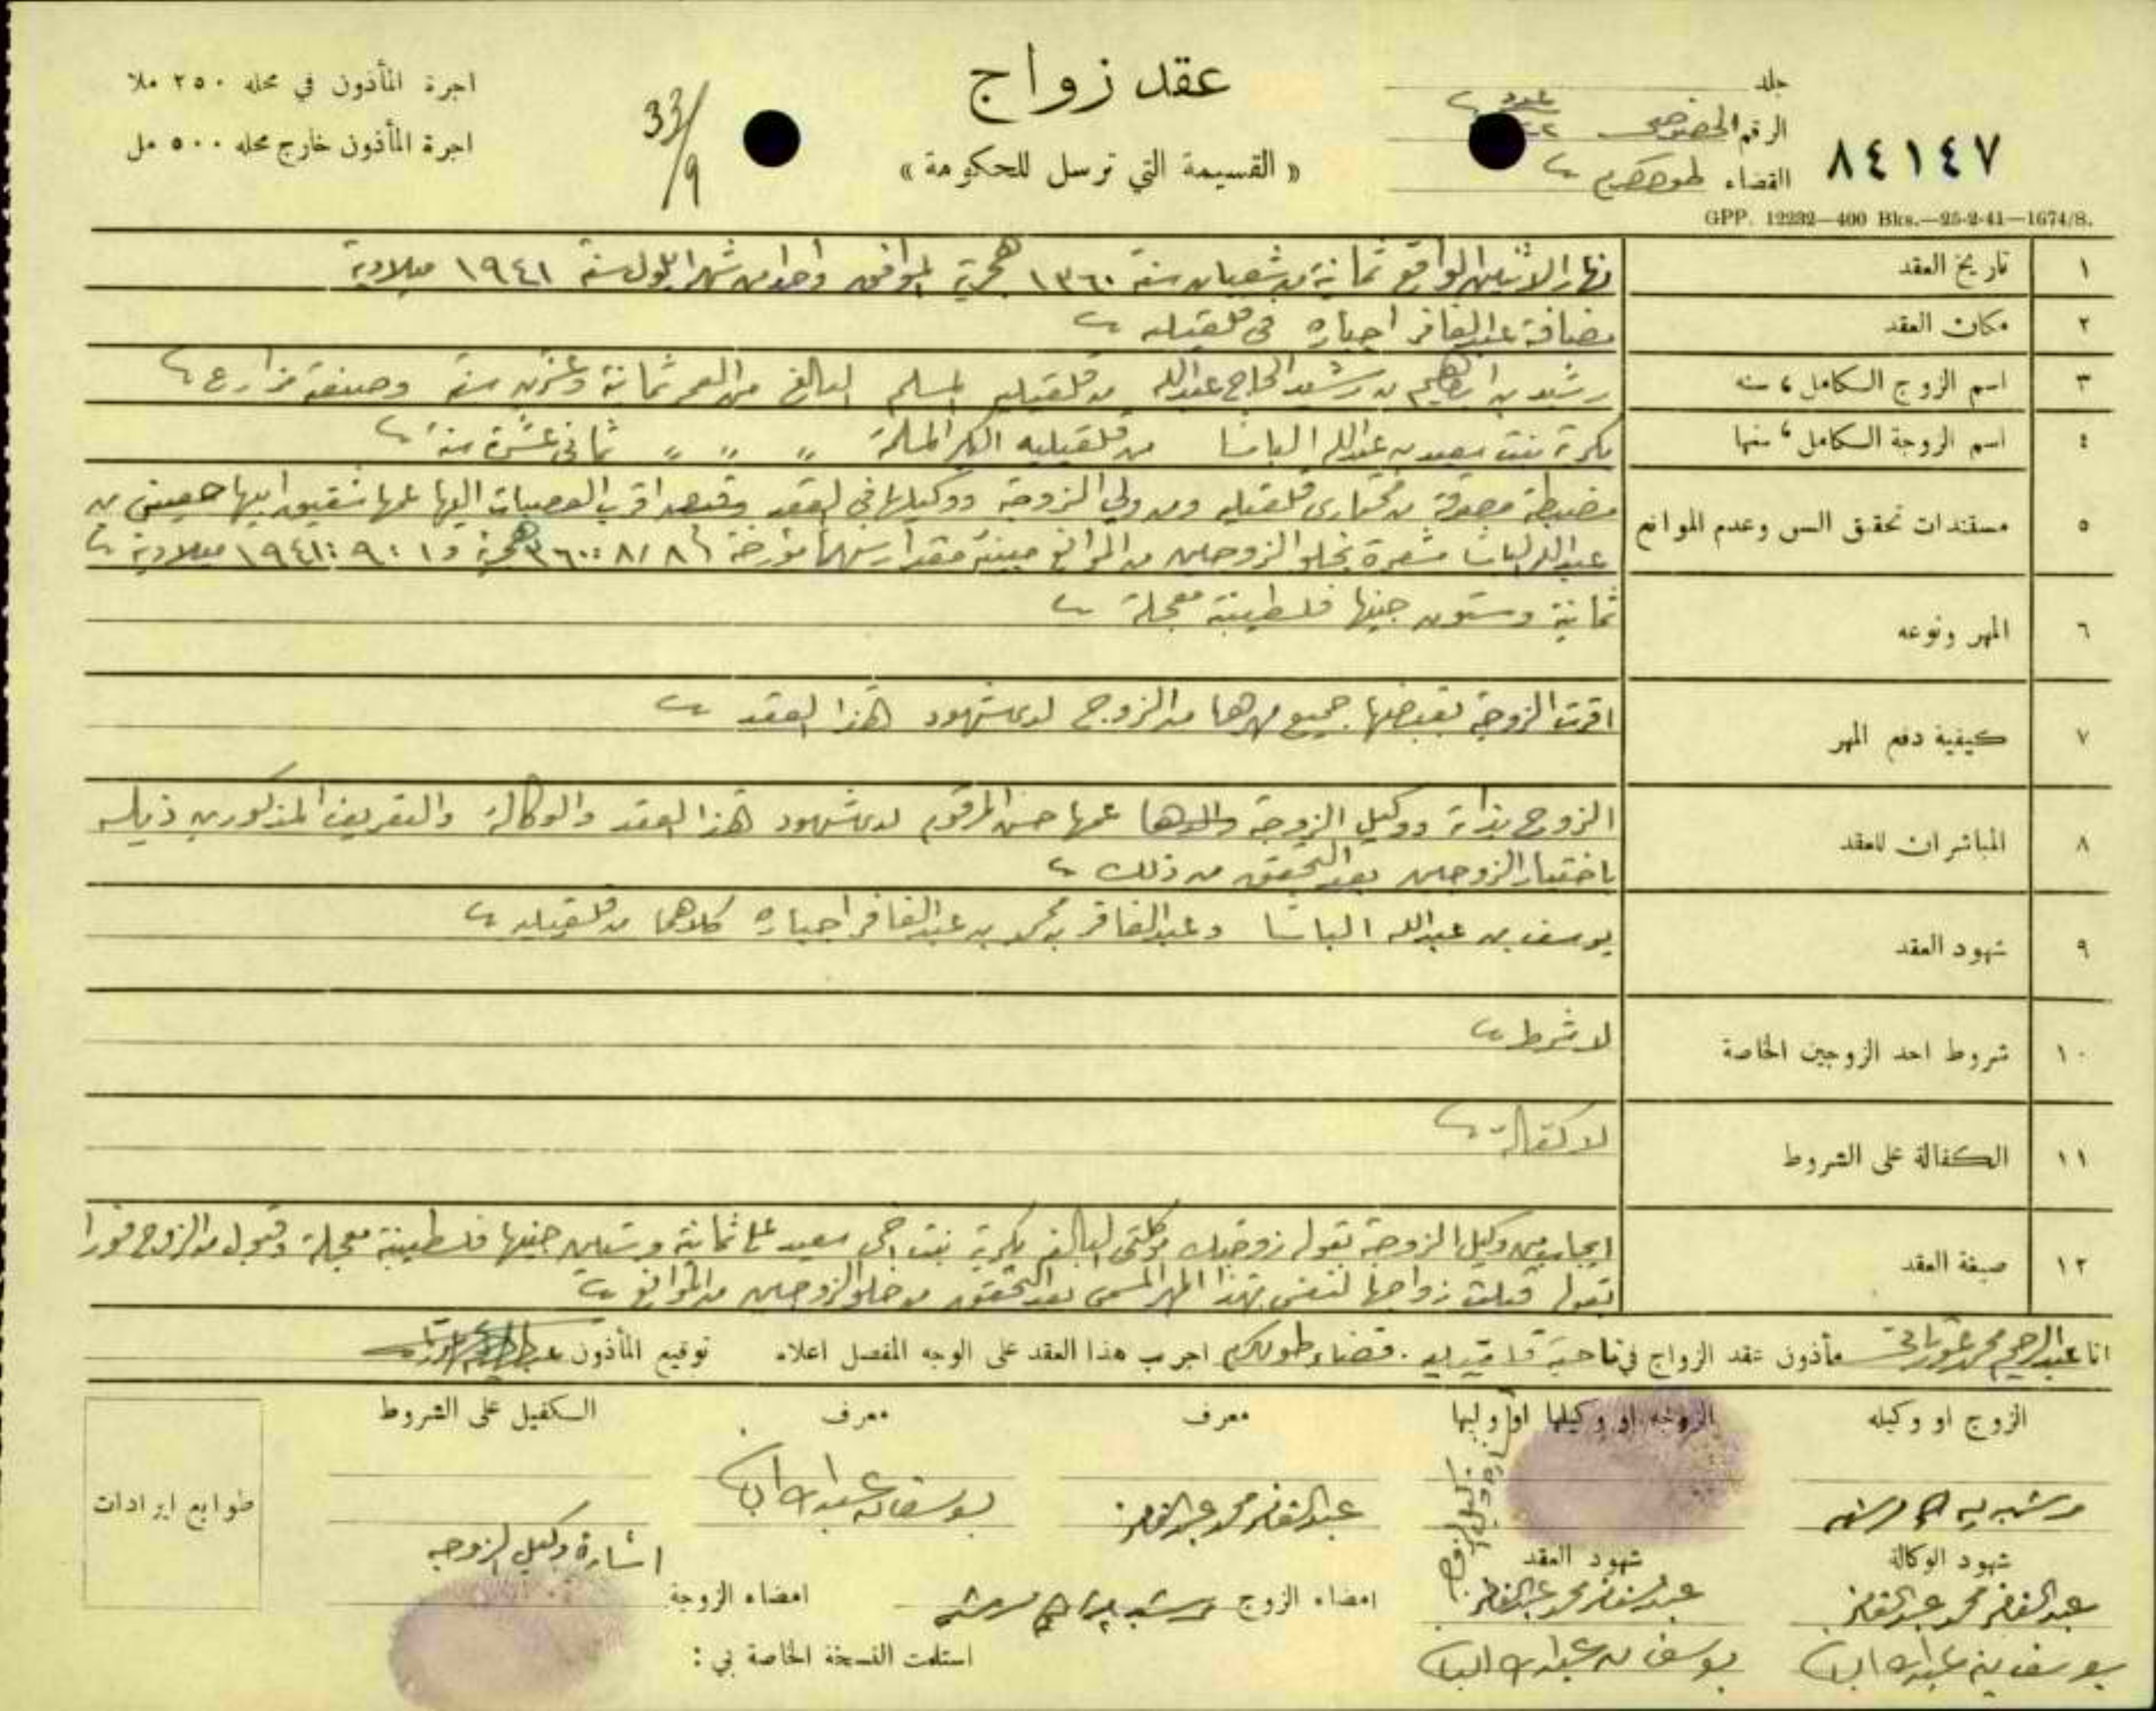 اجرة المأذون في محله ٢٥٠ ملا
اجرة المأذون خارج محله ٥٠٠ مل
33/9
عقد زواج
« القسيمة التي ترسل للحكومة »
جلد
الرقم الخصوصي
القضاء طولكرم
٨٤١٤٧
GPP. 12232—400 Bks.—25-2-41—1674/S.
١ تاريخ العقد نهار الاثنين الواقع ثمانية من شعبان سنة ١٣٦٠ هجرية الموافق واحد من شهر ايلول سنة ١٩٤١ ميلادية
٢ مكان العقد مضافة عبد الغافر اجباره في قلقيليه
٣ اسم الزوج الكامل، سنه رشيد بن ابراهيم بن رشيد الحاج عبدالله من قلقيليه المسلم البالغ من العمر ثمانية وعشرين سنة وصنعته مزارع
٤ اسم الزوجة الكامل، سنها بكرية بنت سعيد بن عبدالله الباشا من قلقيليه البكر المسلمة " " " ثماني عشرة سنة
٥ مستندات تحقق السن وعدم الموانع مضبطة مصدقة من مختاري قلقيليه ومن ولي الزوجة ووكيلها في العقد اقرب العصبات اليها عمها شقيق ابيها حسين بن
عبدالله الباشا مشعرة بخلو الزوجين من الموانع مبينة مقدار سنهما مؤرخة ٨/٨/١٣٦٠ هجرية و ١:٩:١٩٤١ ميلادية
٦ المهر ونوعه ثمانية وستون جنيها فلسطينية معجلة
٧ كيفية دفع المهر اقرت الزوجة بقبضها جميع مهرها من الزوج لدى شهود هذا العقد
٨ المباشران للعقد الزوج بذاته ووكيل الزوجة والدها عمها حسن المرقوم لدى شهود هذا العقد والوكالة والتعريف المذكورين ذيله
باختيار الزوجين بعد التحقق من ذلك
٩ شهود العقد يوسف بن عبدالله الباشا وعبدالغافر بن محمد بن عبدالغافر اجباره كلاهما من قلقيليه
١٠ شروط احد الزوجين الخاصة لا شرط
١١ الكفالة على الشروط لا كفالة
١٢ صيغة العقد ايجاب من وكيل الزوجة بقوله زوجتك موكلتي البالغ بكرية بنت اخي سعيد على ثمانية وستين جنيها فلسطينية معجلة وقبول من الزوج فورا
بقوله قبلت زواجها لنفسي بهذا المهر المسمى بعد التحقق من خلو الزوجين من الموانع
انا عبدالرحيم محمد مأذون عقد الزواج في ناحية قلقيليه. قضاء طولكرم اجريت هذا العقد على الوجه المفصل اعلاه توقيع المأذون
الزوج او وكيله الزوجة او وكيلها او وليها معرف معرف الكفيل على الشروط
عبدالغافر محمد عبدالغافر
يوسف بن عبدالله الباشا
طوابع ايرادات
شهود الوكالة شهود العقد
اشارة وكيل الزوجه
عبدالغافر محمد عبدالغافر عبدالغافر محمد عبدالغافر امضاء الزوج امضاء الزوجة
يوسف بن عبدالله الباشا يوسف بن عبدالله الباشا استلمت النسخة الخاصة بي :